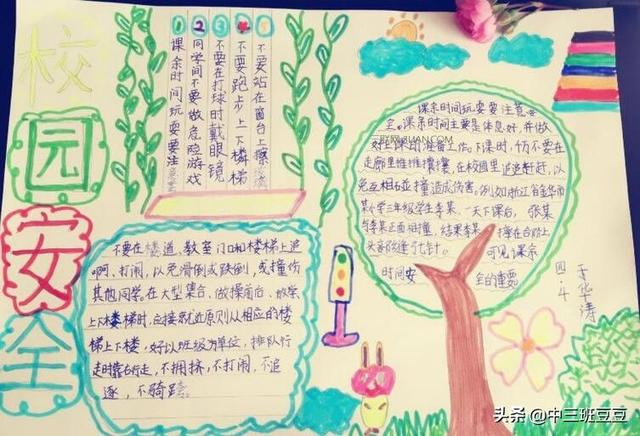 校
园
安
全
1
2
3
课余时间玩耍要注意
同学间不要做危险游戏
不要在打球时戴眼镜
不要跑步上下楼梯
不要站在窗台上擦
不要在楼道、教室门口和楼梯上追
啊,打闹,以免滑倒或跌倒,或撞伤
其他同学,在大型集合、做操前后、放学
上下楼梯时,应按就近原则从相应的楼
梯上下楼,好以班级为单位,排队行
走时靠右行走,不拥挤,不打闹,不追
逐,不骑跨
课余时间玩耍要注意
全。课余时间主要是休息好,并做
好上课的准备工作。下课时,切不要在
走廊里推推攘攘,在校园里追追赶赶,以
免互相碰撞造成伤害,例如浙江省金华市
某小学三年级学生李某,一天下课后,张某
与李某正面相撞,结果李某撞在台阶上,
头部缝七针。可见课余
时间安全的重要
四.4
王华涛
头条 @中三班豆豆